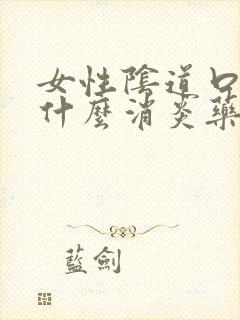 女性陰道口
什麼消炎藥
藍劍